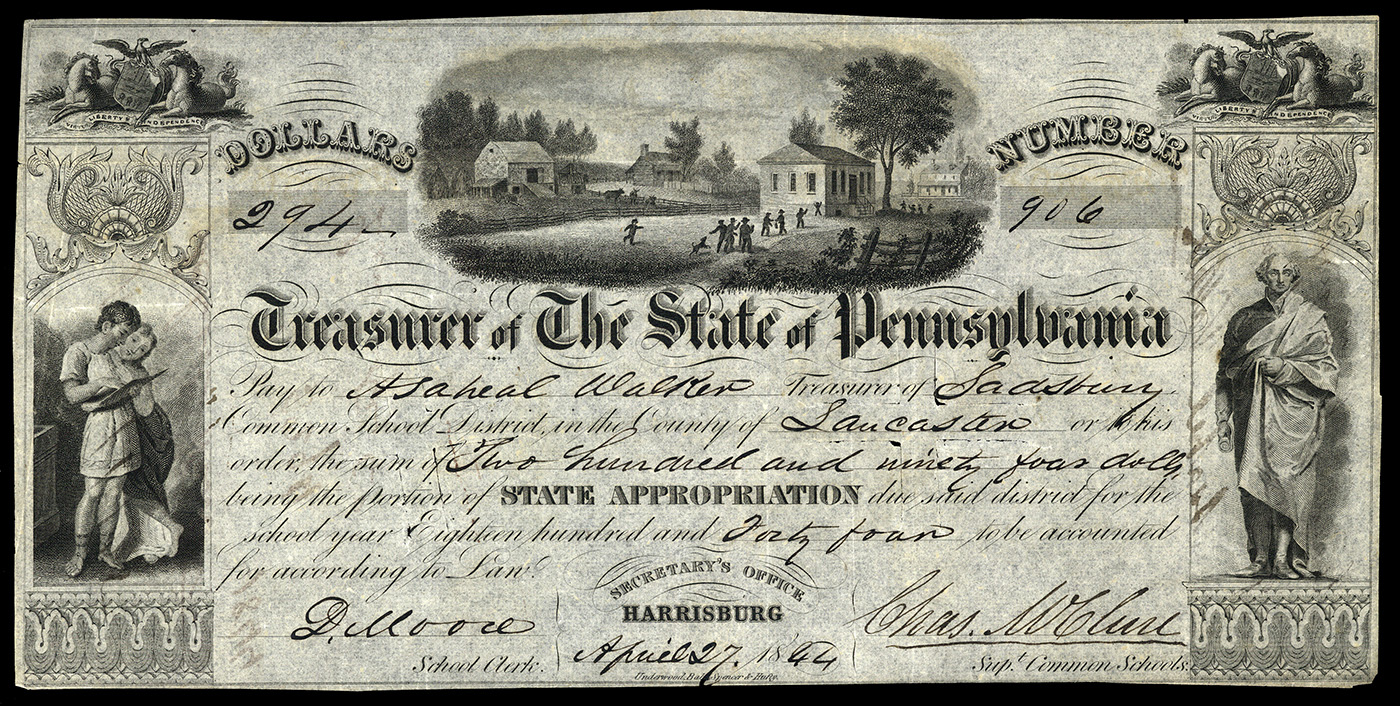 VIRTUE LIBERTY & INDEPENDENCE
VIRTUE LIBERTY & INDEPENDENCE
DOLLARS
NUMBER
294
906
Treasurer of The State of Pennsylvania
Pay to Asaheal Walker Treasurer of Sadsbury
Common School District, in the County of Lancaster or his
order, the sum of Two hundred and ninety four dolls
being the portion of STATE APPROPRIATION due said district for the
school year Eighteen hundred and Forty four to be accounted
for according to Law.
SECRETARY'S OFFICE
HARRISBURG
D. Moore
Chas. McClure
School Clerk.
April 27. 1844
Supt. Common Schools.
Underwood, Bald, Spencer & Hufty.